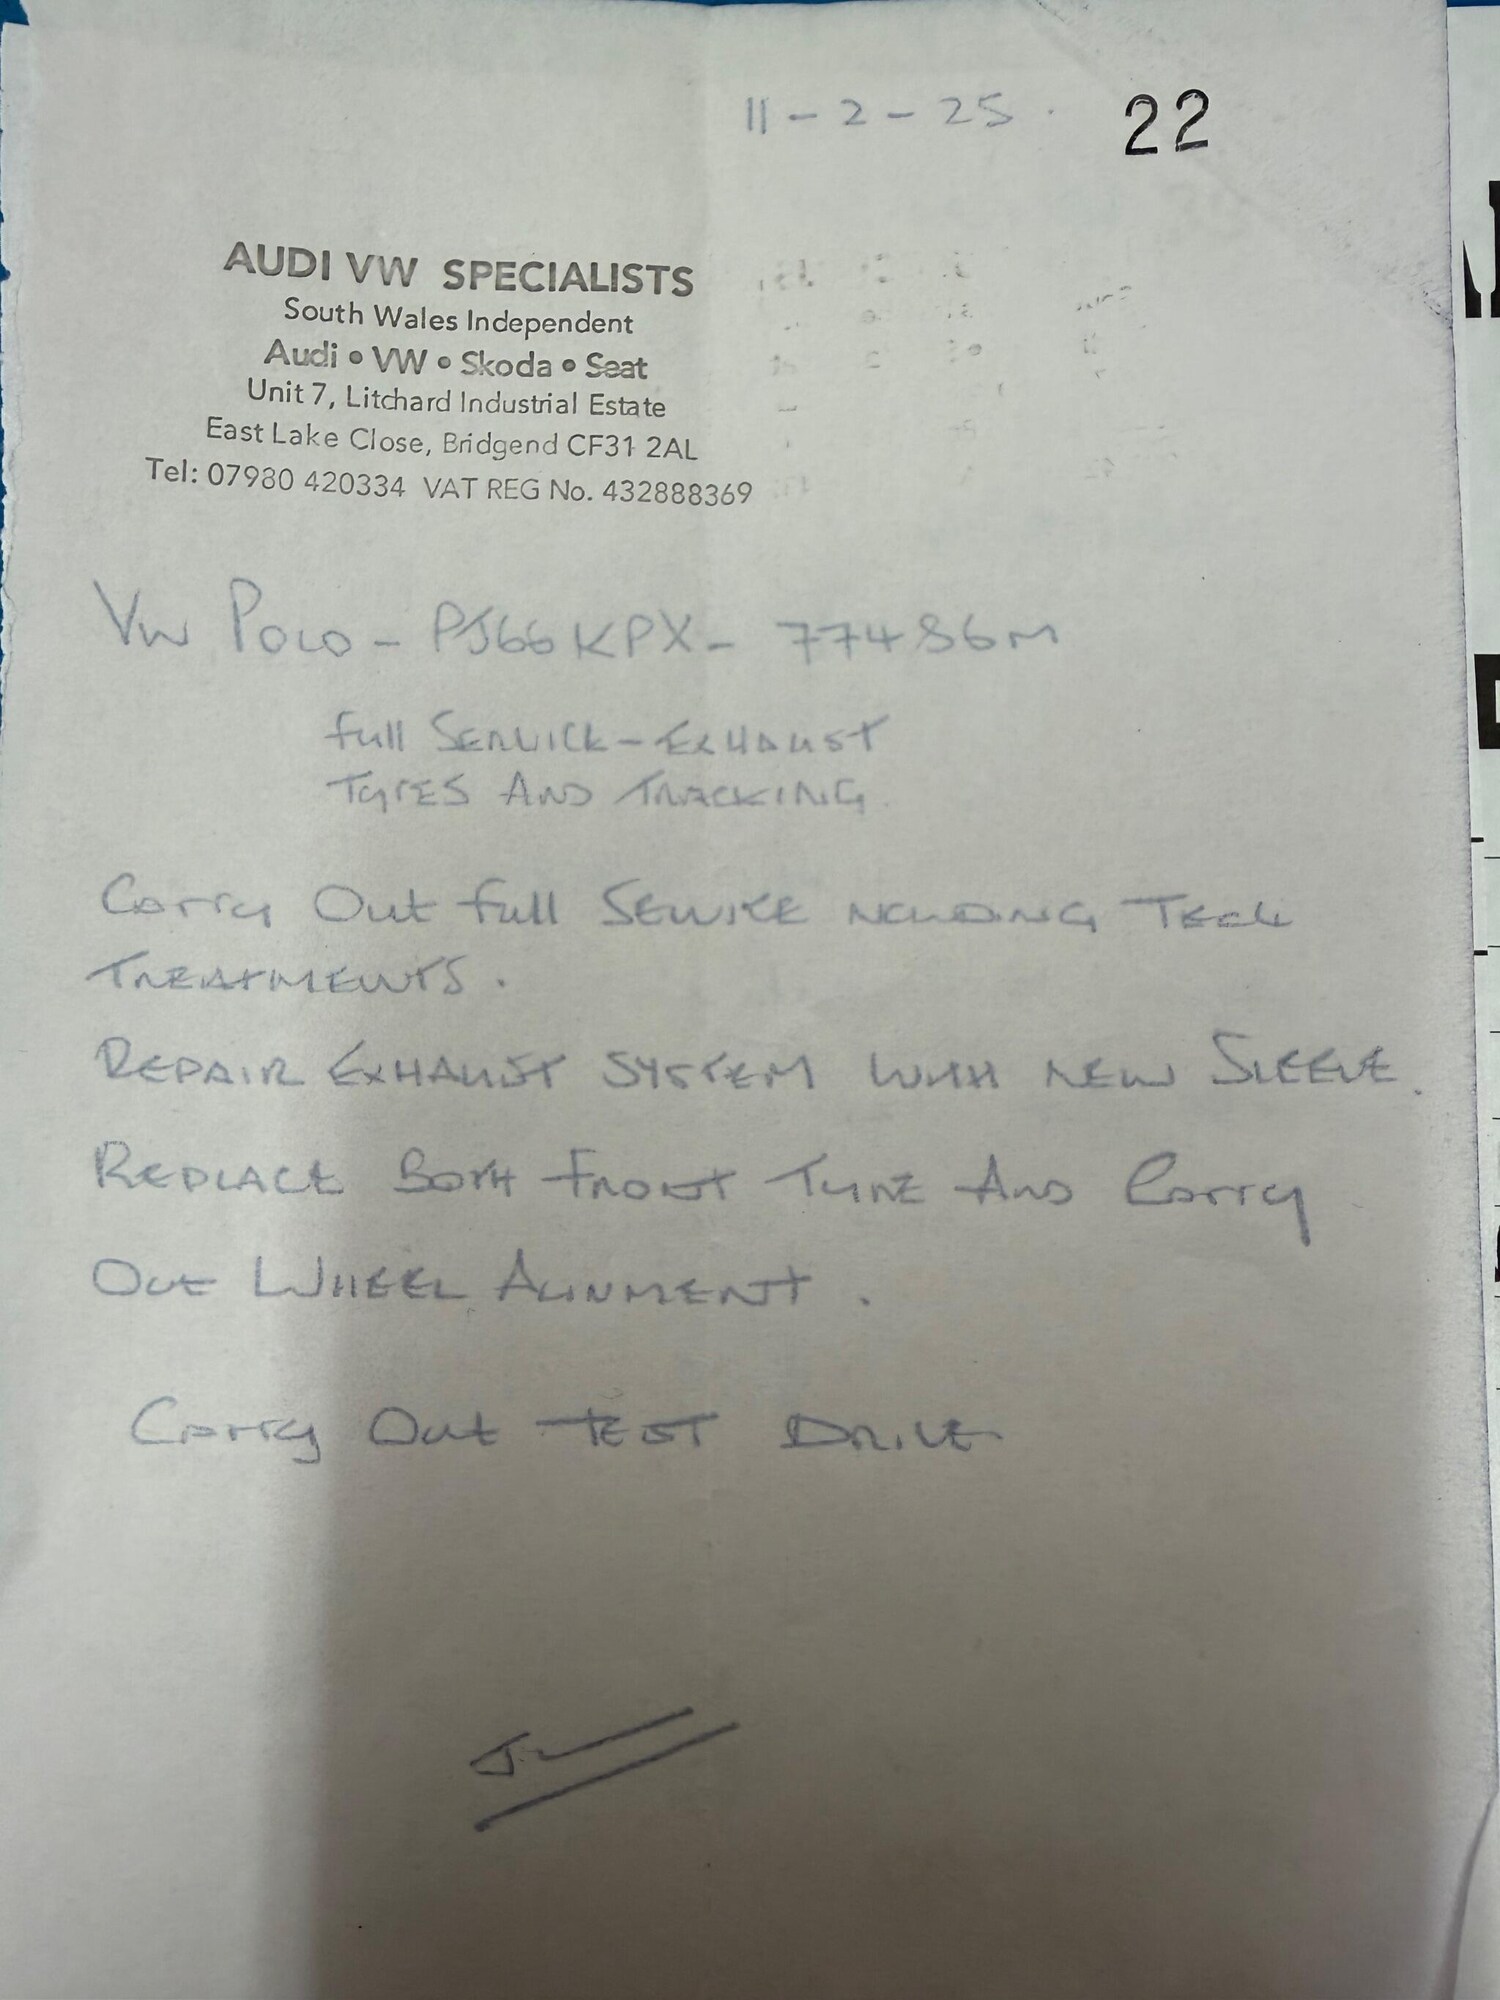 11-2-25.
22
AUDI VW SPECIALISTS
South Wales Independent
Audi • VW • Skoda • Seat
Unit 7, Litchard Industrial Estate
East Lake Close, Bridgend CF31 2AL
Tel: 07980 420334 VAT REG No. 432888369
VW POLO - PJ66KPX - 77486M
Full SERVICE - EXHAUST
TYRES AND TRACKING.
Carry Out full SERVICE INCLUDING TECH
TREATMENTS.
REPAIR EXHAUST SYSTEM WITH NEW SLEEVE.
REPLACE BOTH FRONT TYRE AND Carry
OUT WHEEL ALINMENT.
Carry Out TEST DRIVE